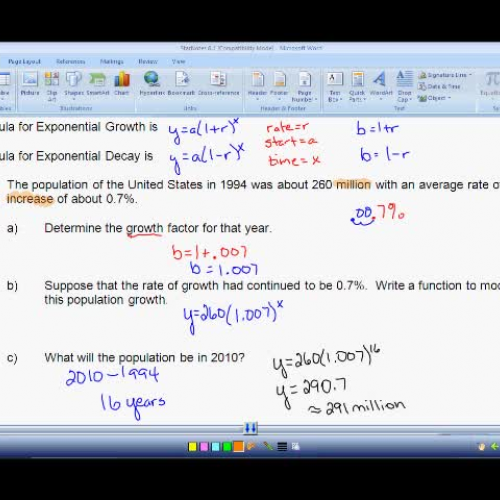 StartNotes 6.1 [Compatibility Mode] - Microsoft Word
Page Layout References Mailings Review View Add-Ins
Picture Clip Art Shapes SmartArt Chart Hyperlink Bookmark Cross-reference Header Footer Page Number Text Box Quick Parts WordArt Drop Cap Signature Line Date & Time Object Equation
Illustrations Links Header & Footer Text
ula for Exponential Growth is y=a(1+r)^x rate=r b=1+r
start=a
ula for Exponential Decay is y=a(1-r)^x time=x b=1-r
The population of the United States in 1994 was about 260 million with an average rate o
increase of about 0.7%. .00.7%
a) Determine the growth factor for that year.
b=1+.007
b=1.007
b) Suppose that the rate of growth had continued to be 0.7%. Write a function to mo
this population growth.
y=260(1.007)^x
c) What will the population be in 2010? y=260(1.007)^16
2010-1994 y=290.7
16 years ≈291million